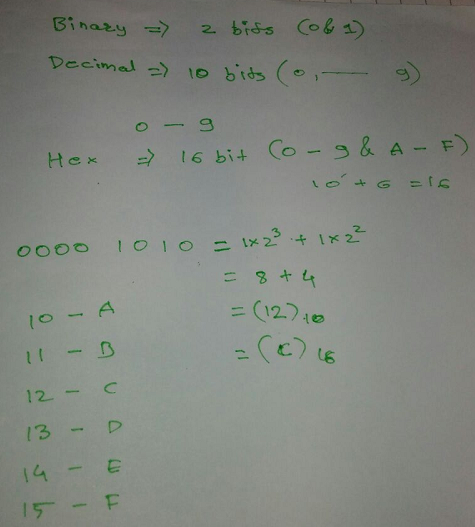 Binary => 2 bits (0 & 1)
Decimal => 10 bits (0, — 9)
0 - 9
Hex => 16 bit (0 - 9 & A - F)
10 + 6 = 16
0000 1010 = 1x2³ + 1x2²
= 8 + 4
= (12)₁₀
= (C)₁₆
10 - A
11 - B
12 - C
13 - D
14 - E
15 - F